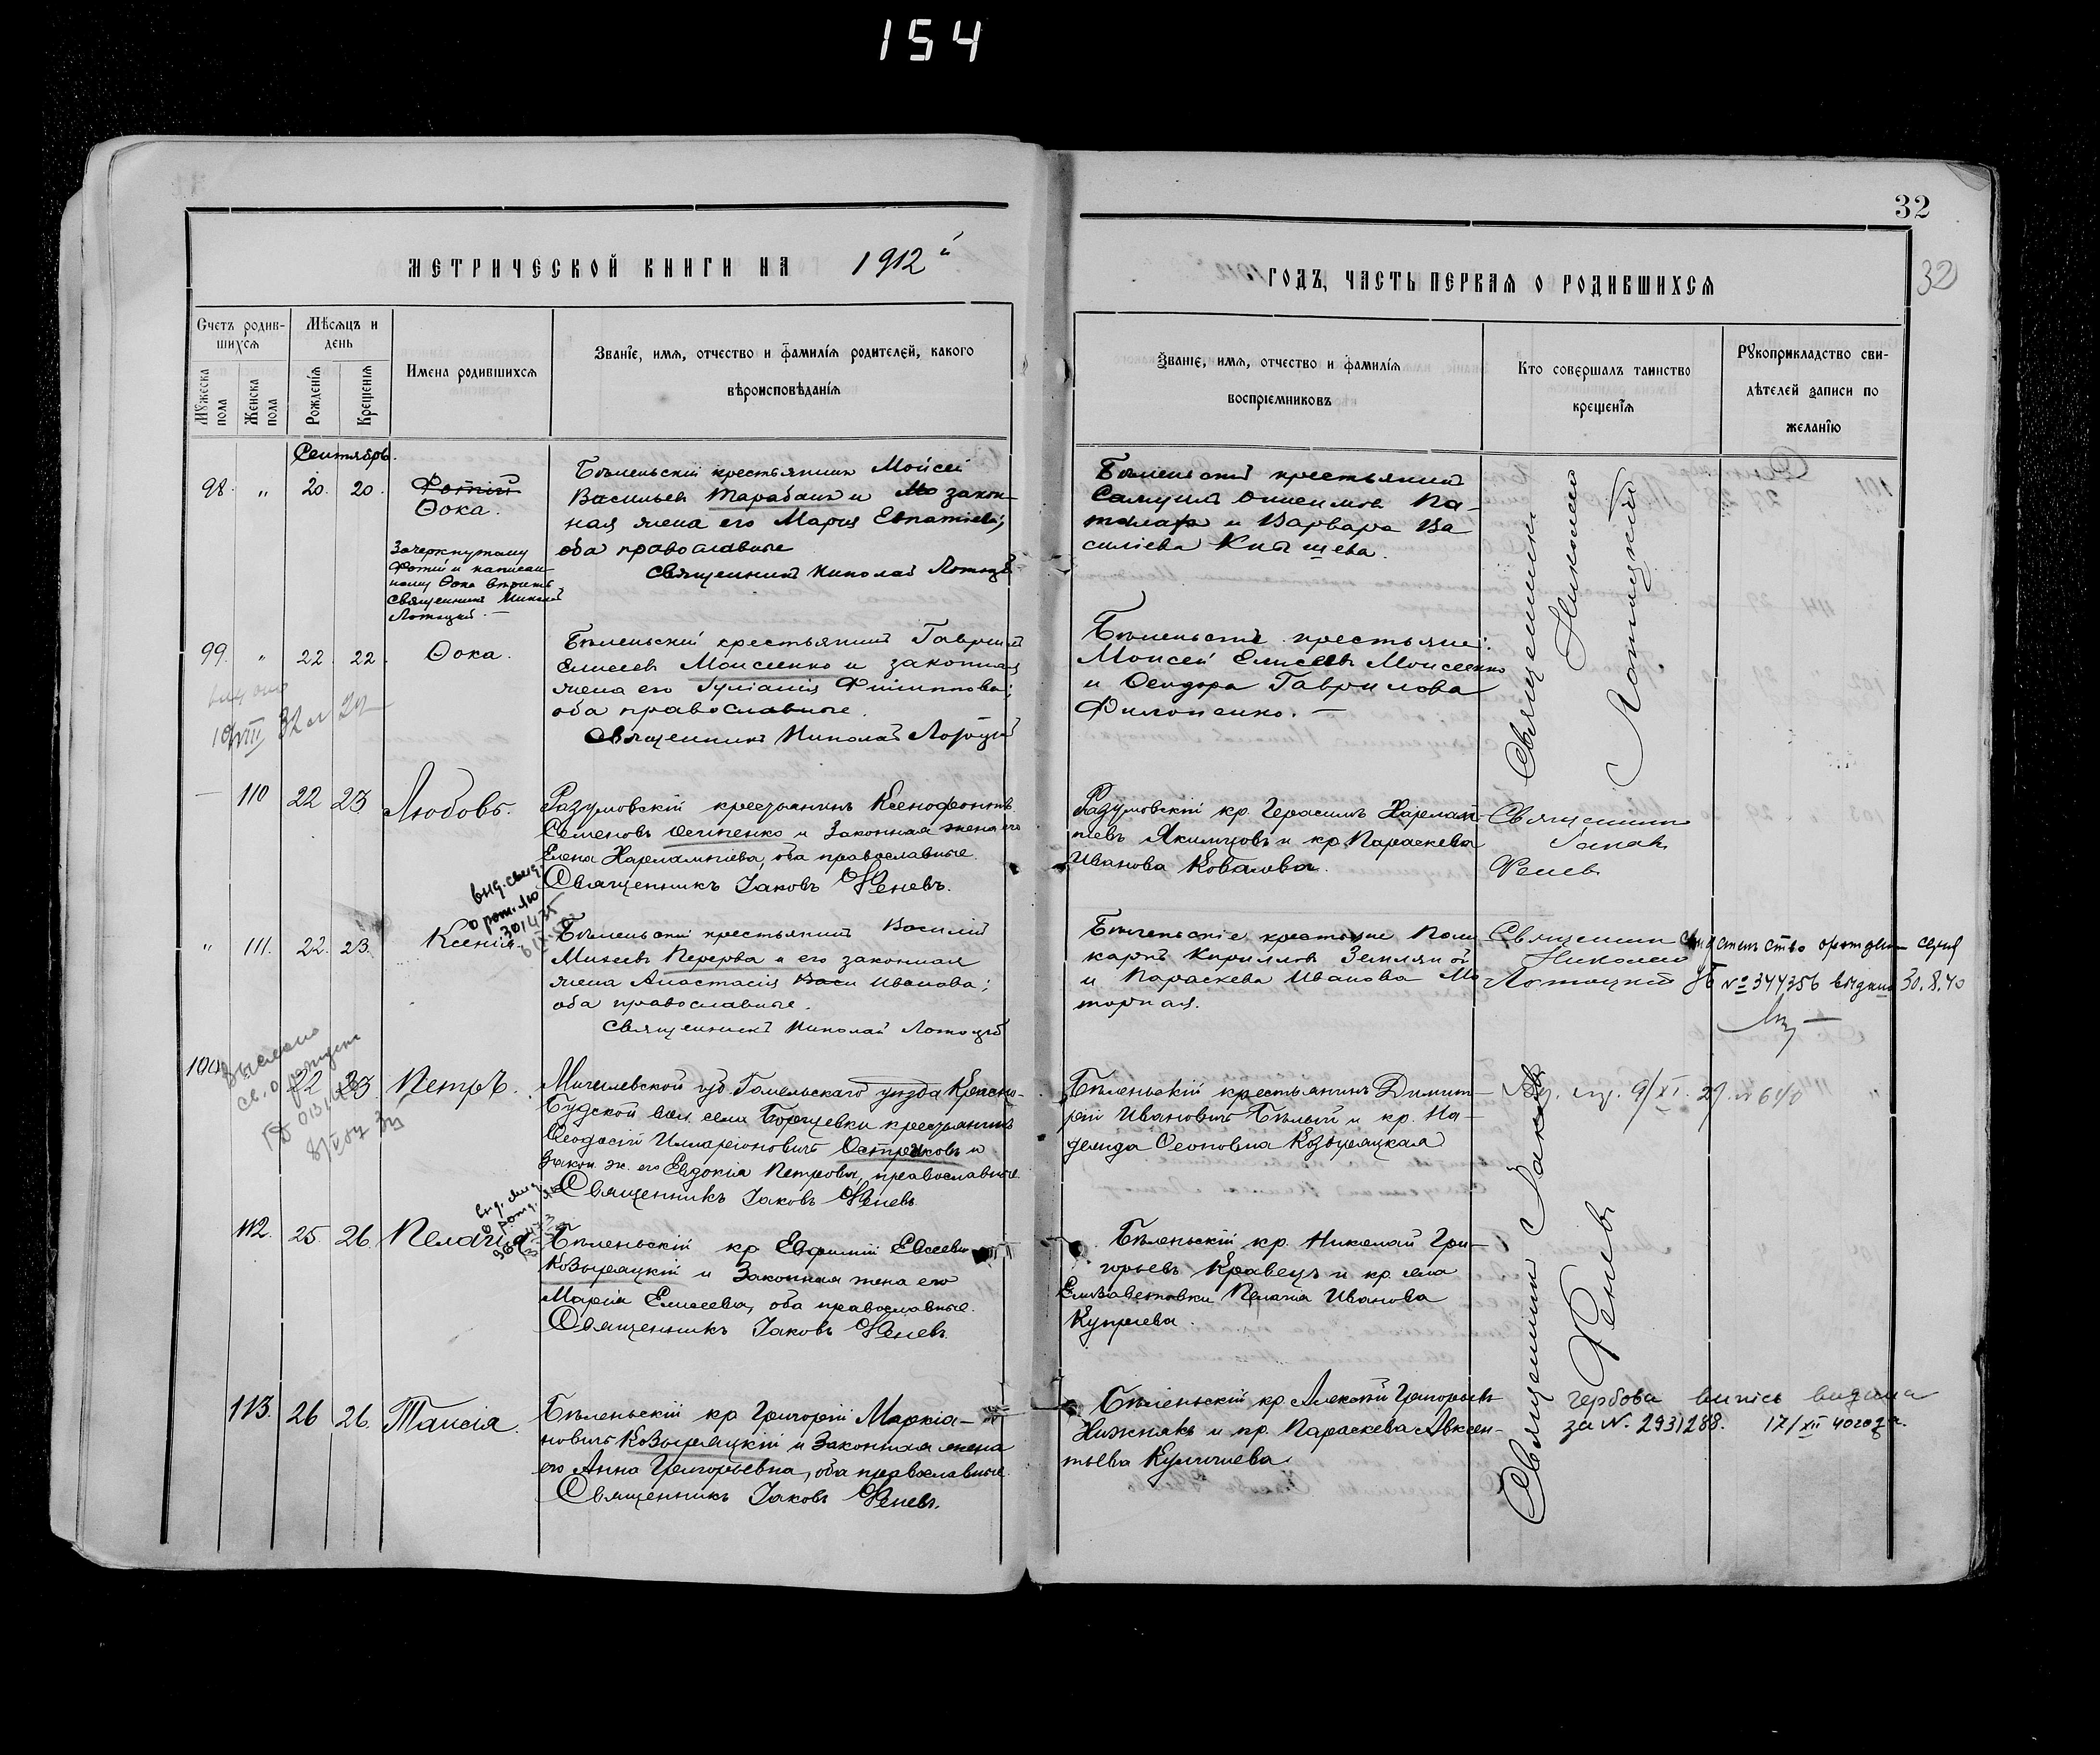 154
32
32
МЕТРИЧЕСКОЙ КНИГИ НА 1912 й
ГОДЪ, ЧАСТЬ ПЕРВАЯ О РОДИВШИХСЯ
Счетъ родив-
шихся
Мужеска пола
Женска пола
Мѣсяцъ и
день
Рожденія
Крещенія
Имена родившихся
Званіе, имя, отчество и фамилія родителей, какого
вѣроисповѣданія
Званіе, имя, отчество и фамилія
воспріемниковъ
Кто совершалъ таинство
крещенія
Рукоприкладство сви-
дѣтелей записи по
желанію
Сентябрь.
98. " 20. 20. Фотій
Ѳока.
Зачеркнутому
Фотій и написан-
ному Ѳока вѣрить
священникъ Николай
Лотоцкій. —
Бѣленьскій крестьянинъ Мойсей
Васильевъ Тарабанъ и Мо закон-
ная жена его Марія Евпатіева;
оба православные
Священникъ Николай Лотоцкій
Бѣленьскій крестьянинъ
Самуилъ Онисимов
и Варвара Ва
силіева
Священникъ
Николай
Лотоцкій
99. " 22. 22. Ѳока.
Бѣленьскій крестьянинъ Гавріилъ
Елисеевъ Моисеенко и законная
жена его Іуліанія Филиппова;
оба православные.
Священникъ Николай Лотоцкій
Бѣленьскіе крестьяне:
Моисей Елисеевъ Моисеенко
и Ѳеодора Гаврилова
Филоненко. —
— 110 22 23 Любовь.
Разумовскій крестьянинъ Ксенофонтъ
Семеновъ Осипенко и Законная жена его
Елена Харлампіева, оба православные.
Священникъ Іаковъ Феневъ.
Разумовскій кр. Герасимъ Харлам-
піевъ Якимцовъ и кр. Параскева
Иванова Ковалова.
Священникъ
Іаковъ
Феневъ
выд. свид.
о рож. ЛЮ
301435
" 111. 22. 23. Ксенія.
Бѣленьскій крестьянинъ Василій
Михеевъ Перерва и его законная
жена Анастасія Васи Иванова;
оба православные.
Священникъ Николай Лотоцкій
Бѣленьскіе крестьяне Поли
карпъ Кирилловъ Земляной
и Параскева Иванова Мо
торная.
Священникъ
Николай
Лотоцкій
№ 344356 выдано 30.8.40
100 22 23 Петръ.
Могилевской губ. Гомельскаго уѣзда Красно-
Будской вол. села Борщевки крестьянинъ
Ѳеодосій Илларіоновичъ Остряковъ и
закон. ж. его Евдокія Петровна, православные
Священникъ Іаковъ Феневъ.
Бѣленьскій крестьянинъ Димит-
рій Ивановичъ Бѣлый и кр. На-
дежда Ѳеоновна Козырацкая
9/XI. 29. № 640
Священникъ Іаковъ
Феневъ
112. 25. 26. Пелагія
Бѣленьскій кр. Евфимій Евсеевъ
Козырацкій и Законная жена его
Марія Елисеева, оба православные.
Священникъ Іаковъ Феневъ.
Бѣленьскій кр. Николай Гри-
горьевъ Кравецъ и кр. села
Елизаветовки Пелагія Иванова
Купріева.
113. 26 26. Таисія.
Бѣленьскій кр. Григорій Маркіа-
новичъ Козырацкій и Законная жена
его Анна Григорьевна, оба православные.
Священникъ Іаковъ Феневъ.
Бѣленьскій кр. Алексѣй Григорьевъ
Нижникъ и кр. Параскева Авксен-
тьева Куличиева
гербова випись видана
за N. 2931288. 17/XII 40 года.